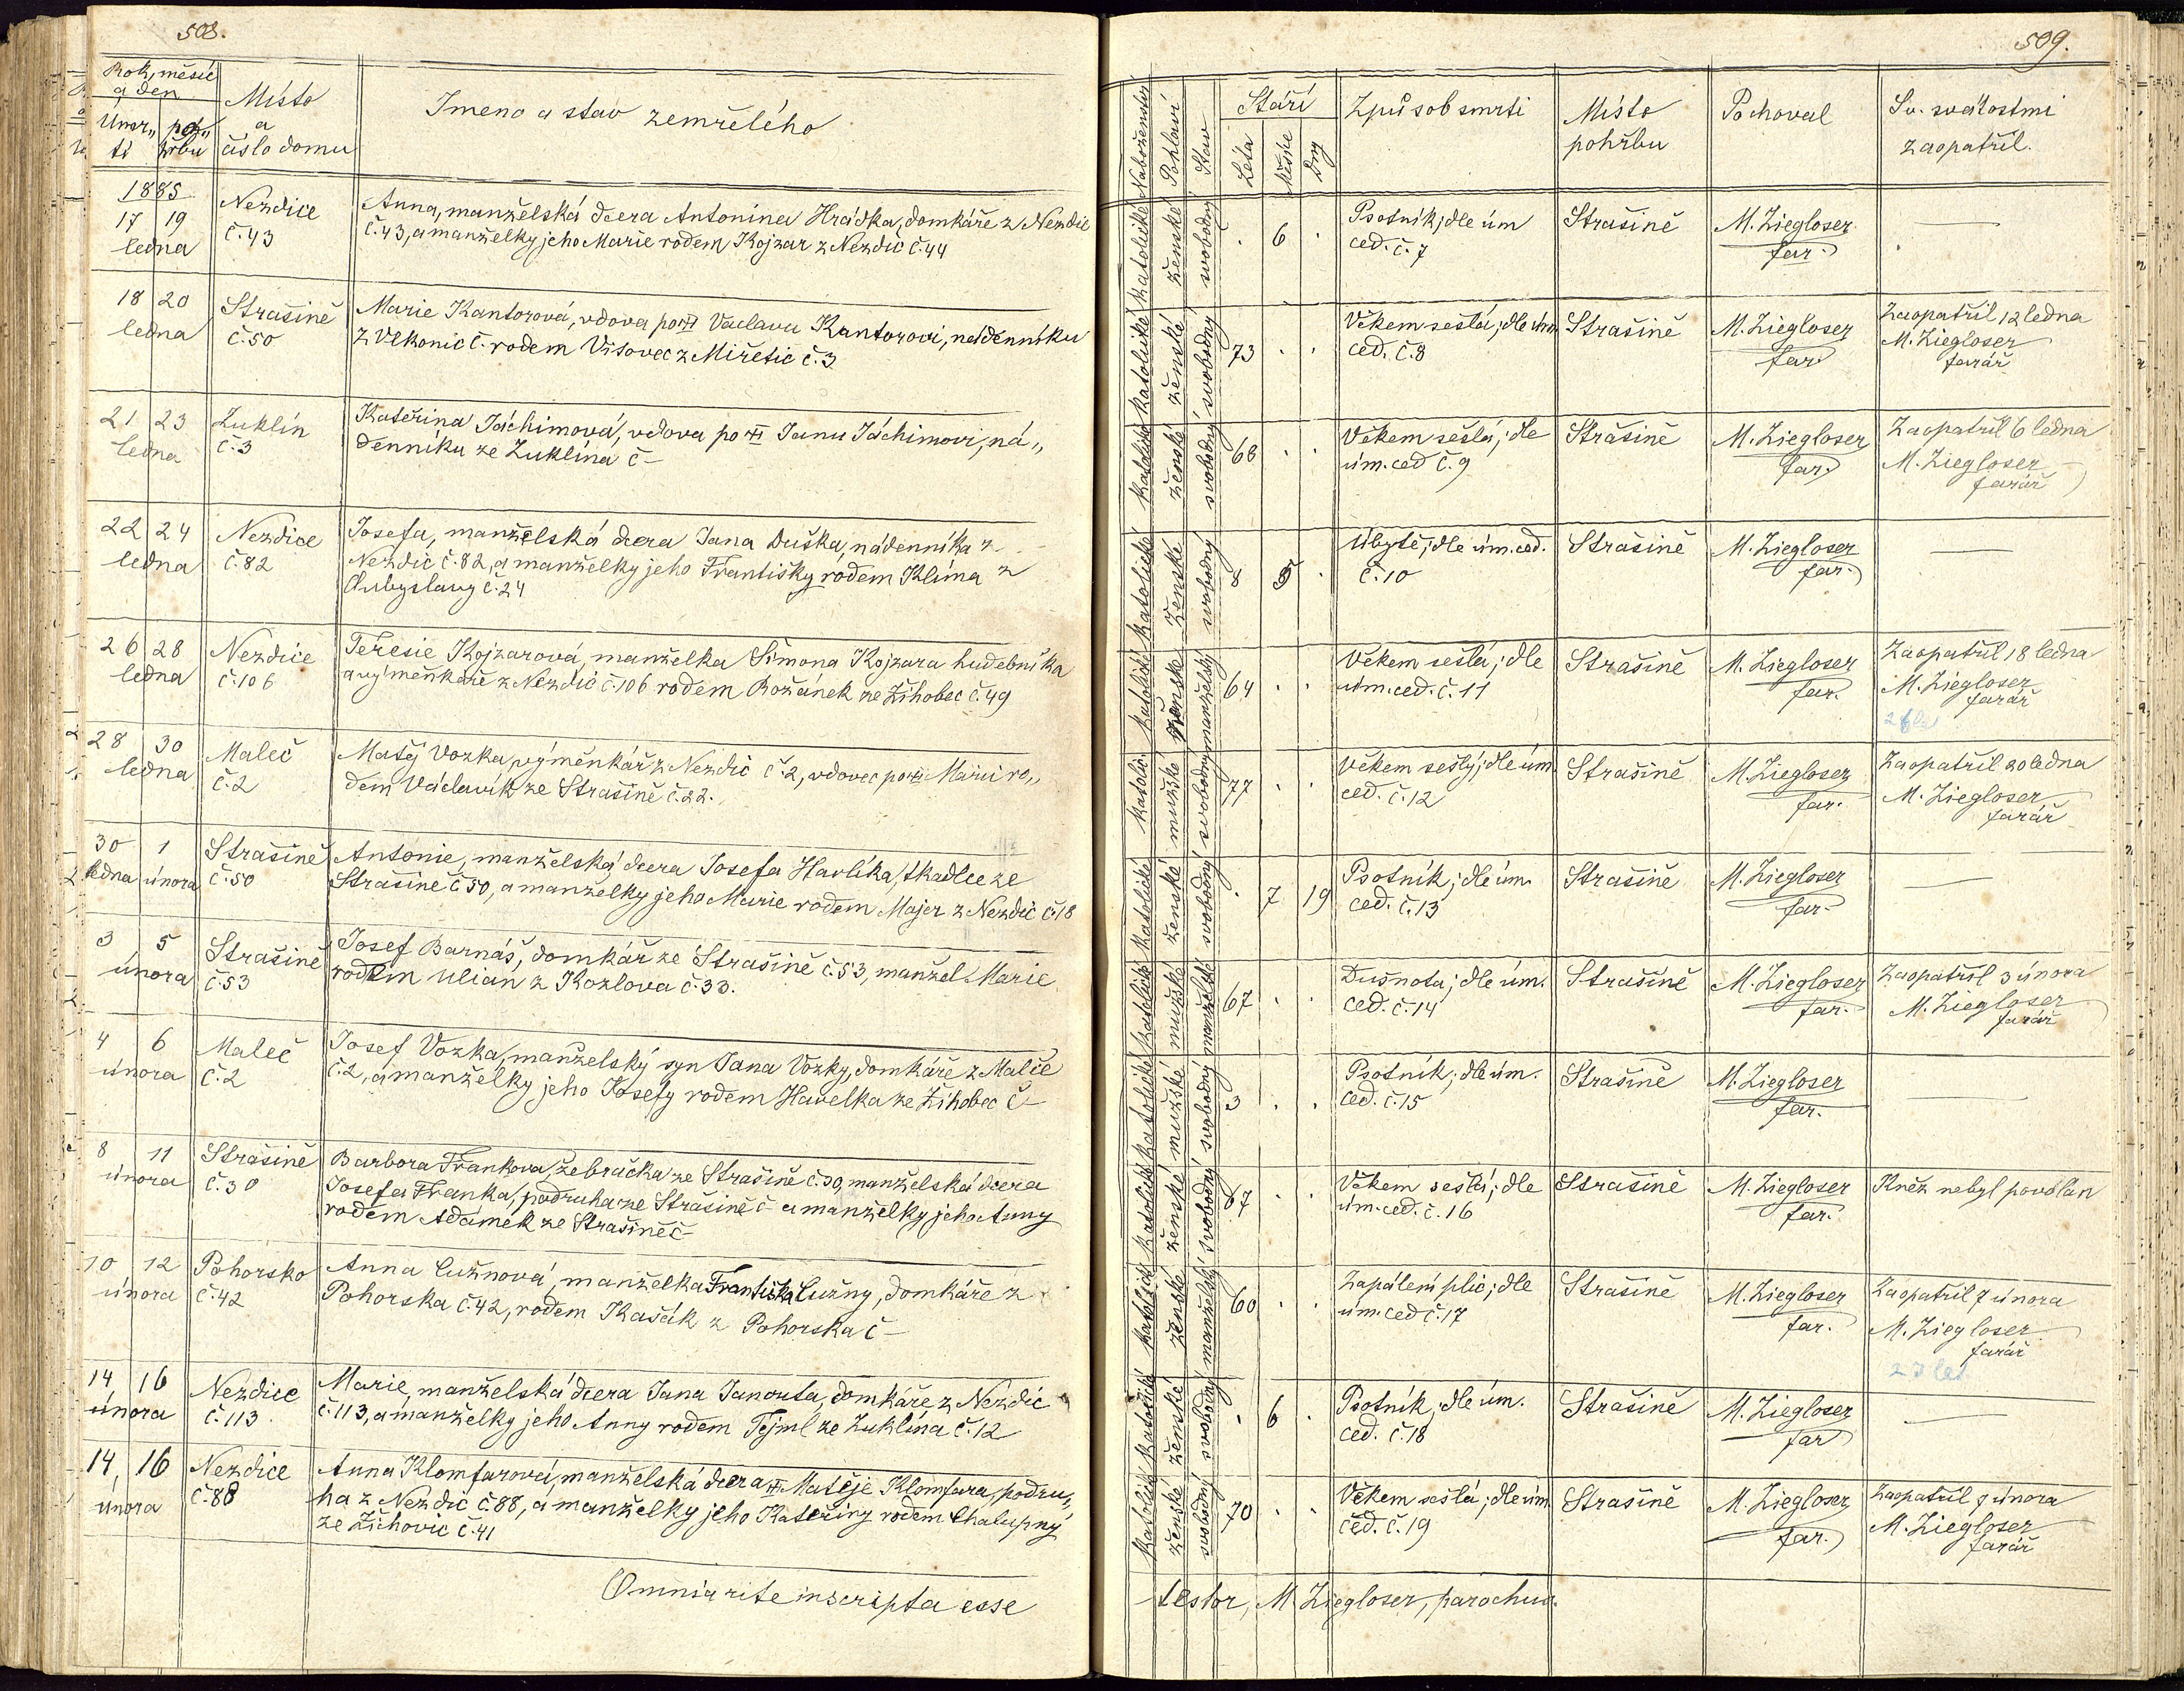 508.
Rok, měsíc
a den
Úmr„ poh„
tí řbu
Místo
a
číslo domu
Jmeno a stav zemřelého
1885
17 19
ledna
Nezdice
č. 43
Anna, manželská dcera Antonína Hrádka, domkáře z Nezdic
č. 43, a manželky jeho Marie rodem Kojzar z Nezdic č. 44
18 20
ledna
Strašině
č. 50
Marie Kantorová, vdova po Václavu Kantorovi, nádenníku
z Vlkonic č. rodem Vítovec z Miřetic č. 3
21 23
ledna
Zuklín
č. 3
Kateřina Jáchimová, vdova po Janu Jáchimovi, ná„
denníku ze Zuklína č –
22 24
ledna
Nezdice
č. 82
Josefa, manželská dcera Jana Duška, nádenníka z
Nezdic č. 82, a manželky jeho Františky rodem Klíma z
Chubyslavy č. 24
26 28
ledna
Nezdice
č. 106
Teresie Kojzarová, manželka Šimona Kojzara hudebníka
a výměnkáře z Nezdic č. 106 rodem Rožánek ze Žihobec č. 49
28 30
ledna
Maleč
č. 2
Matěj Vozka, výměnkář z Nezdic č. 2, vdovec po Marii ro„
dem Václavík ze Strašině č. 22.
30 1
ledna února
Strašině
č. 50
Antonie, manželská dcera Josefa Havlíka, tkadlce ze
Strašině č 50, a manželky jeho Marie rodem Majer z Nezdic č. 18
3 5
února
Strašině
č. 53
Josef Barnáš, domkář ze Strašině č. 53, manžel Marie
rodem Ulian z Kozlova č. 33.
4 6
února
Maleč
č. 2
Josef Vozka, manželský syn Jana Vozky, domkáře z Malče
č. 2, a manželky jeho Josefy rodem Havelka ze Žihobec č –
8 11
února
Strašině
č. 30
Barbora Frankova, žebračka ze Strašině č. 30, manželská dcera
Josefa Franka, podruha ze Strašině č – a manželky jeho Anny
rodem Adámek ze Strašině č –
10 12
února
Pohorsko
č. 42
Anna Cužnová, manželka Františka Cužny, domkáře z
Pohorska č. 42, rodem Kašák z Pohorska č –
14 16
února
Nezdice
č. 113
Marie, manželská dcera Jana Janouta, domkáře z Nezdic
č. 113, a manželky jeho Anny rodem Tejml ze Zuklína č. 12
14 16
února
Nezdice
č. 88
Anna Klomfarová, manželská dcera Matěje Klomfara, podru„
ha z Nezdic č 88, a manželky jeho Kateřiny rodem Chalupný
ze Žichovic č. 41
Omnia rite inscripta esse
509.
Náboženství
Pohlaví
Stav
Stáří
Léta
Měsíce
Dny
Způsob smrti
Místo
pohřbu
Pochoval
Sv. svátostmi
zaopatřil.
katolické ženské svobodný
. 6 .
Psotník; dle úm
ced. č. 7
Strašině
M. Ziegloser
far.
—
katolické ženské svobodný
73 . .
Věkem sešlá; dle úm
ced. č. 8
Strašině
M. Ziegloser
far
Zaopatřil 12 ledna
M. Ziegloser
farář
katolické ženské svobodný
68 . .
Věkem sešlá; dle
úm. ced č. 9
Strašině
M. Ziegloser
far.
Zaopatřil 6 ledna
M. Ziegloser
farář
katolické ženské svobodný
8 5 .
Úbytě; dle úm. ced.
č. 10
Strašině
M. Ziegloser
far.
—
katolické ženské manželský
64 . .
Věkem sešlá; dle
úm. ced. č. 11
Strašině
M. Ziegloser
far.
Zaopatřil 18 ledna
M. Ziegloser
farář
katolic. mužské svobodný
77 . .
Věkem sešlý; dle úm
ced. č. 12
Strašině
M. Ziegloser
far.
Zaopatřil 20 ledna
M. Ziegloser
farář
katolické ženské svobodný
. 7 19
Psotník; dle úm.
ced. č. 13
Strašině
M. Ziegloser
far.
—
katolické mužské manželské
67 . .
Dušnota; dle úm.
ced. č. 14
Strašině
M. Ziegloser
far.
Zaopatřil 3 února
M. Ziegloser
farář
katolické mužské svobodný
3 . .
Psotník; dle úm.
ced. č. 15
Strašině
M. Ziegloser
far.
—
katolické ženské svobodný
67 . .
Věkem sešlá; dle
úm. ced. č. 16
Strašině
M. Ziegloser
far.
Kněz nebyl povolán
katolické ženské manželský
60 . .
Zapálení plic; dle
úm. ced č. 17
Strašině
M. Ziegloser
far.
Zaopatřil 7 února
M. Ziegloser
farář
23 let
katolické ženské svobodný
. 6 .
Psotník; dle úm.
ced. č. 18
Strašině
M. Ziegloser
far
—
katolické ženské svobodný
70 . .
Věkem sešlá; dle úm
ced. č. 19
Strašině
M. Ziegloser
far.
Zaopatřil 7 února
M. Ziegloser
farář
testor, M. Ziegloser, parochus.